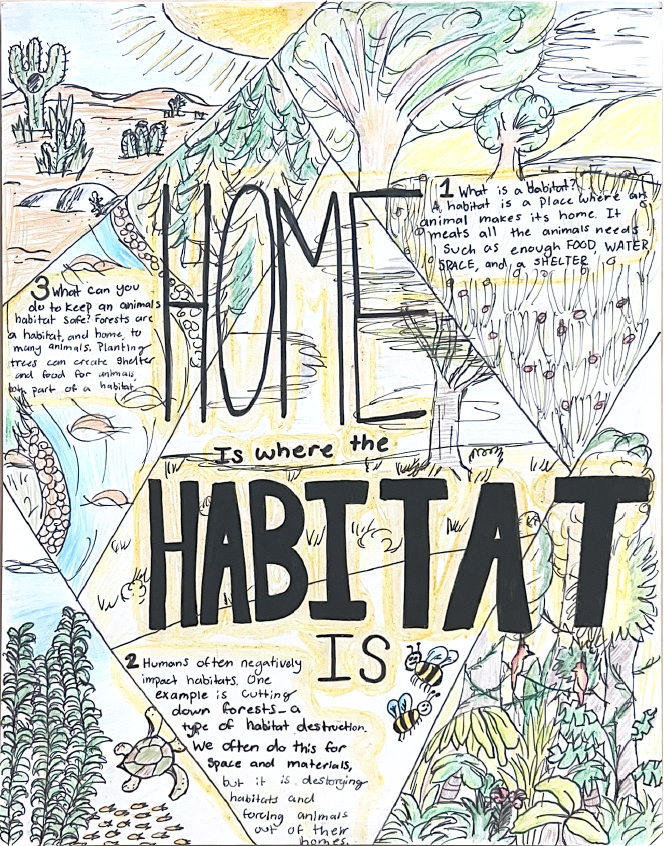 HOME
Is where the
HABITAT
IS
1 What is a habitat?
A habitat is a place where an
animal makes its home. It
meats all the animals needs
Such as enough FOOD, WATER
SPACE, and a SHELTER
2 Humans often negatively
impact habitats. One
example is cutting
down forests_a
type of habitat destruction.
We often do this for
space and materials,
but it is destorying
habitats and
forcing animals
out of their
homes.
3 What can you
do to keep an animals
habitat safe? Forests are
a habitat, and home, to
many animals. Planting
trees can create shelter
and food for animals
part of a habitat